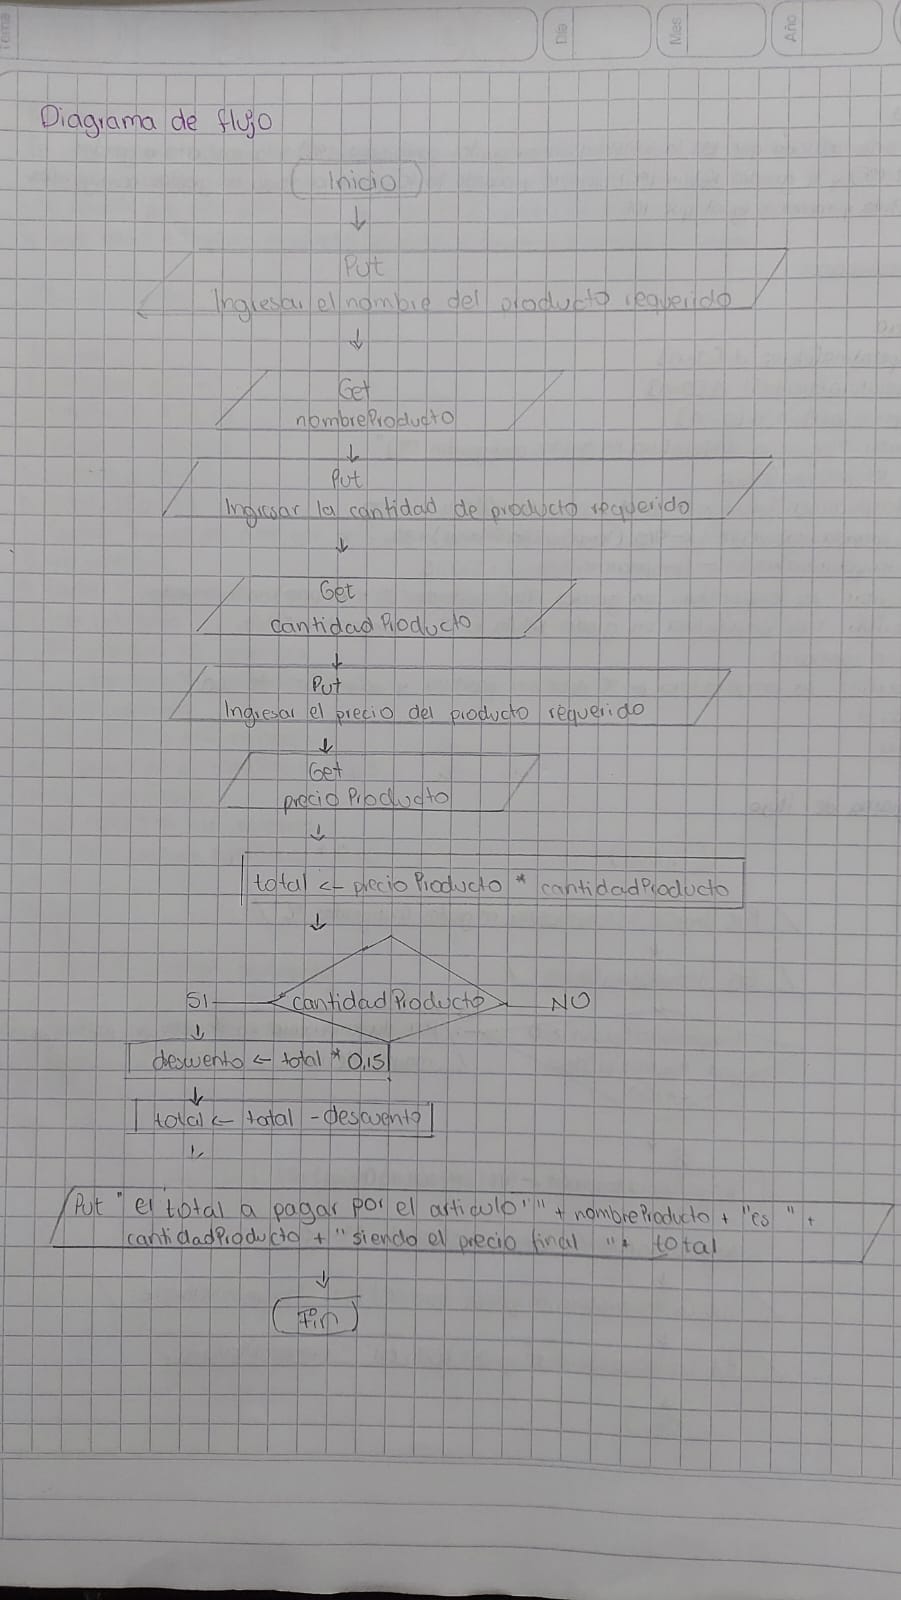 Tema
Día
Mes
Año
Diagrama de flujo
Inicio
Put
Ingresar el nombre del producto requerido
Get
nombreProducto
Put
Ingresar la cantidad de producto requerido
Get
cantidadProducto
Put
Ingresar el precio del producto requerido
Get
precioProducto
total ← precioProducto * cantidadProducto
SI cantidadProducto NO
descuento ← total * 0,15
total ← total - descuento
Put "el total a pagar por el articulo"" + nombreProducto + "es " +
cantidadProducto + "siendo el precio final "+ total
Fin